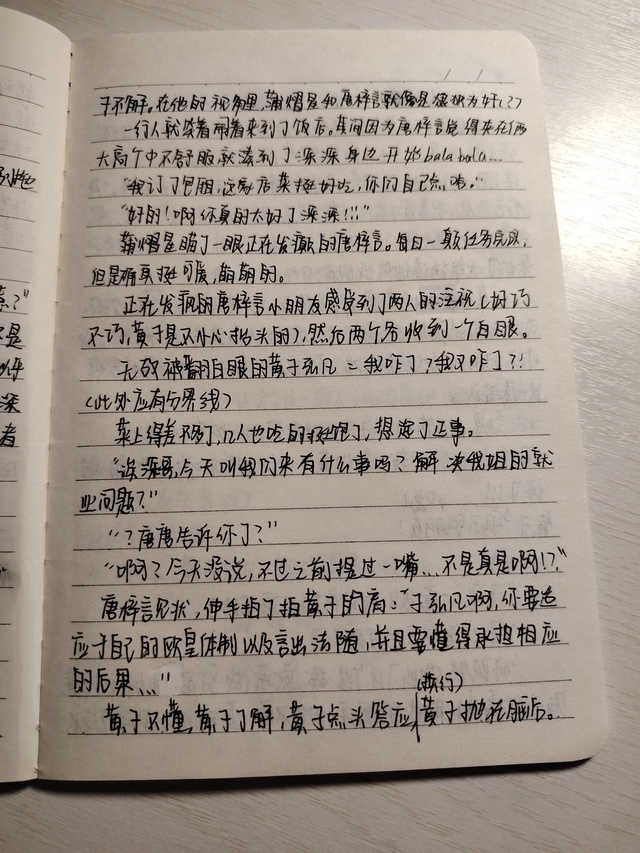 子不解。在他的视角里,蒲熠星和唐梓言就像是狼狈为奸(?)
一行人就笑着闹着来到了饭店。其间因为唐梓言觉得夹在俩
大高个中不舒服就溜到了深深身边开始balabala...
“我订了包厢,这家店菜挺好吃,你们自己点哈。”
“好的!啊你真的太好了深深!!!”
蒲熠星瞄了一眼正在发癫的唐梓言。每日一颠任务完成,
但是确实挺可爱,萌萌的。
正在发疯的唐梓言小朋友感受到了两人的注视(好巧
不巧,黄子是不小心抬头的),然后两个各收到一个白眼。
无故被翻白眼的黄子弘凡:我咋了?我又咋了?!
(此处应有分界线)
菜上得差不多了,几人也吃的挺饱了,想定了正事。
“诶深哥,今天叫我们来有什么事吗?解决我姐的就
业问题?”
“?唐唐告诉你了?”
“啊?今天没说,不过之前提过一嘴...不是真是啊!?”
唐梓言见状,伸手拍了拍黄子的肩:“子弘凡啊,你要适
应于自己的欧皇体制以及言出法随,并且要懂得承担相应
的后果...”
(燕行)
黄子不懂,黄子了解,黄子点头答应,黄子抛在脑后。